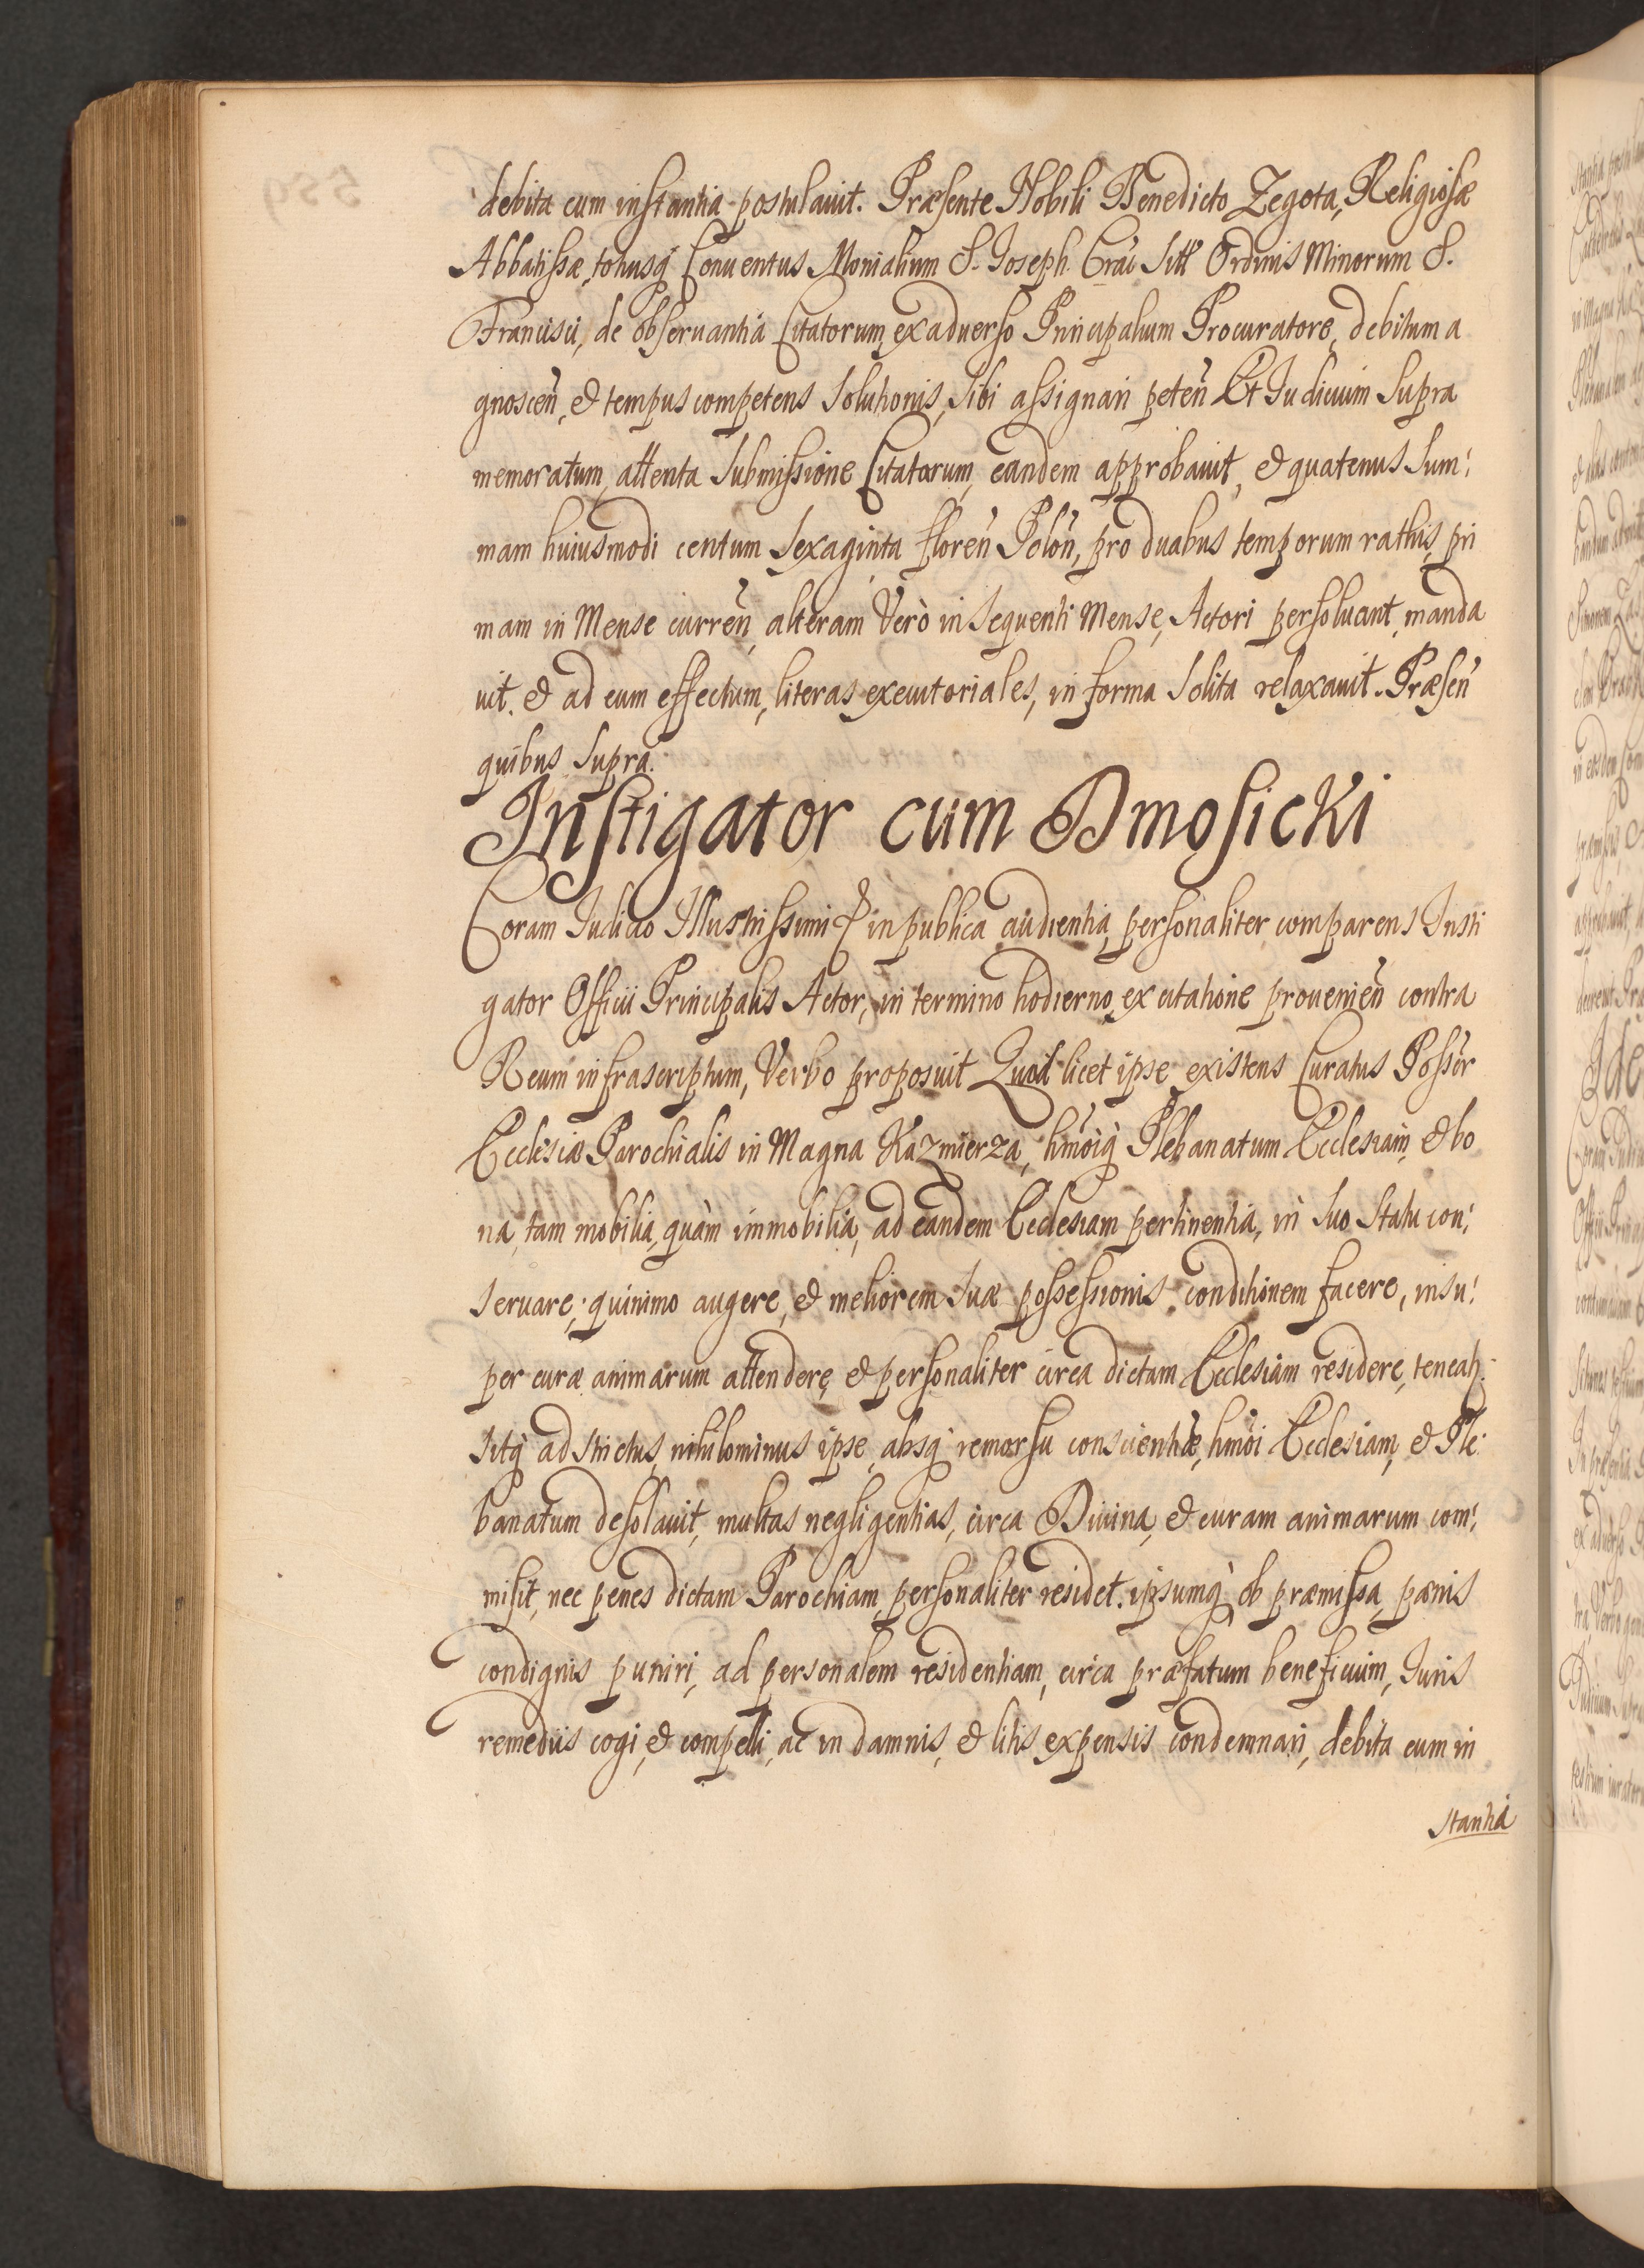 debita cum instantia postulauit. Præsente Nobili Benedicto Zegota, Religiosæ
Abbatissæ, totiusq Conuentus Monialium S. Joseph. Crac̃ Ordinis Minorum S.
Francisci, de obseruantia Citatorum, ex aduerso Principalium Procuratore, debitum a
gnosceñ, & tempus competens Solutionis, Sibi assignari peteñ Et Judicium Supra
memoratum, attenta Submissione Citatorum, eandem approbauit, & quatenus Sum:
mam huiusmodi centum Sexaginta floreñ Poloñ, pro duabus temporum rathis, pri
mam in Mense curreñ, alteram Verò in Sequenti Mense, Actori persoluant, manda
uit. & ad eum effectum, literas executoriales, in forma Solita relaxauit. Præseñ
quibus Supra.
Instigator cum Dmosicki
Coram Judicio Illustrissimi & in publica audientia, personaliter comparens Insti
gator Officii Principalis Actor, in termino hodierno, ex citatione prouenieñ contra
Reum infrascriptum, Verbo proposuit Quod licet ipse existens Curatus Possor̃
Ecclesiæ Parochialis in Magna Kazmierza, hmõiq Plebanatum Ecclesiam, & bo
na, tam mobilia, quàm immobilia, ad eandem Ecclesiam pertinentia, in Suo Statu con:
Seruare, quinimo augere, & meliorem Suæ possessionis conditionem facere, insu:
per curæ animarum attendere, & personaliter circa dictam Ecclesiam residere, teneatr
Sitq adstrictus, nihilominus ipse, absq remorsu conscientiæ, hmõi Ecclesiam, & Ple:
banatum desolauit, multas negligentias, circa Diuina, & curam animarum com:
misit, nec penes dictam Parochiam, personaliter residet. ipsumq ob præmissa, pænis
condignis puniri, ad personalem residentiam, circa præfatum beneficium, Juris
remediis cogi, & compelli, ac in damnis, & litis expensis condemnari, debita cum in
Stantia